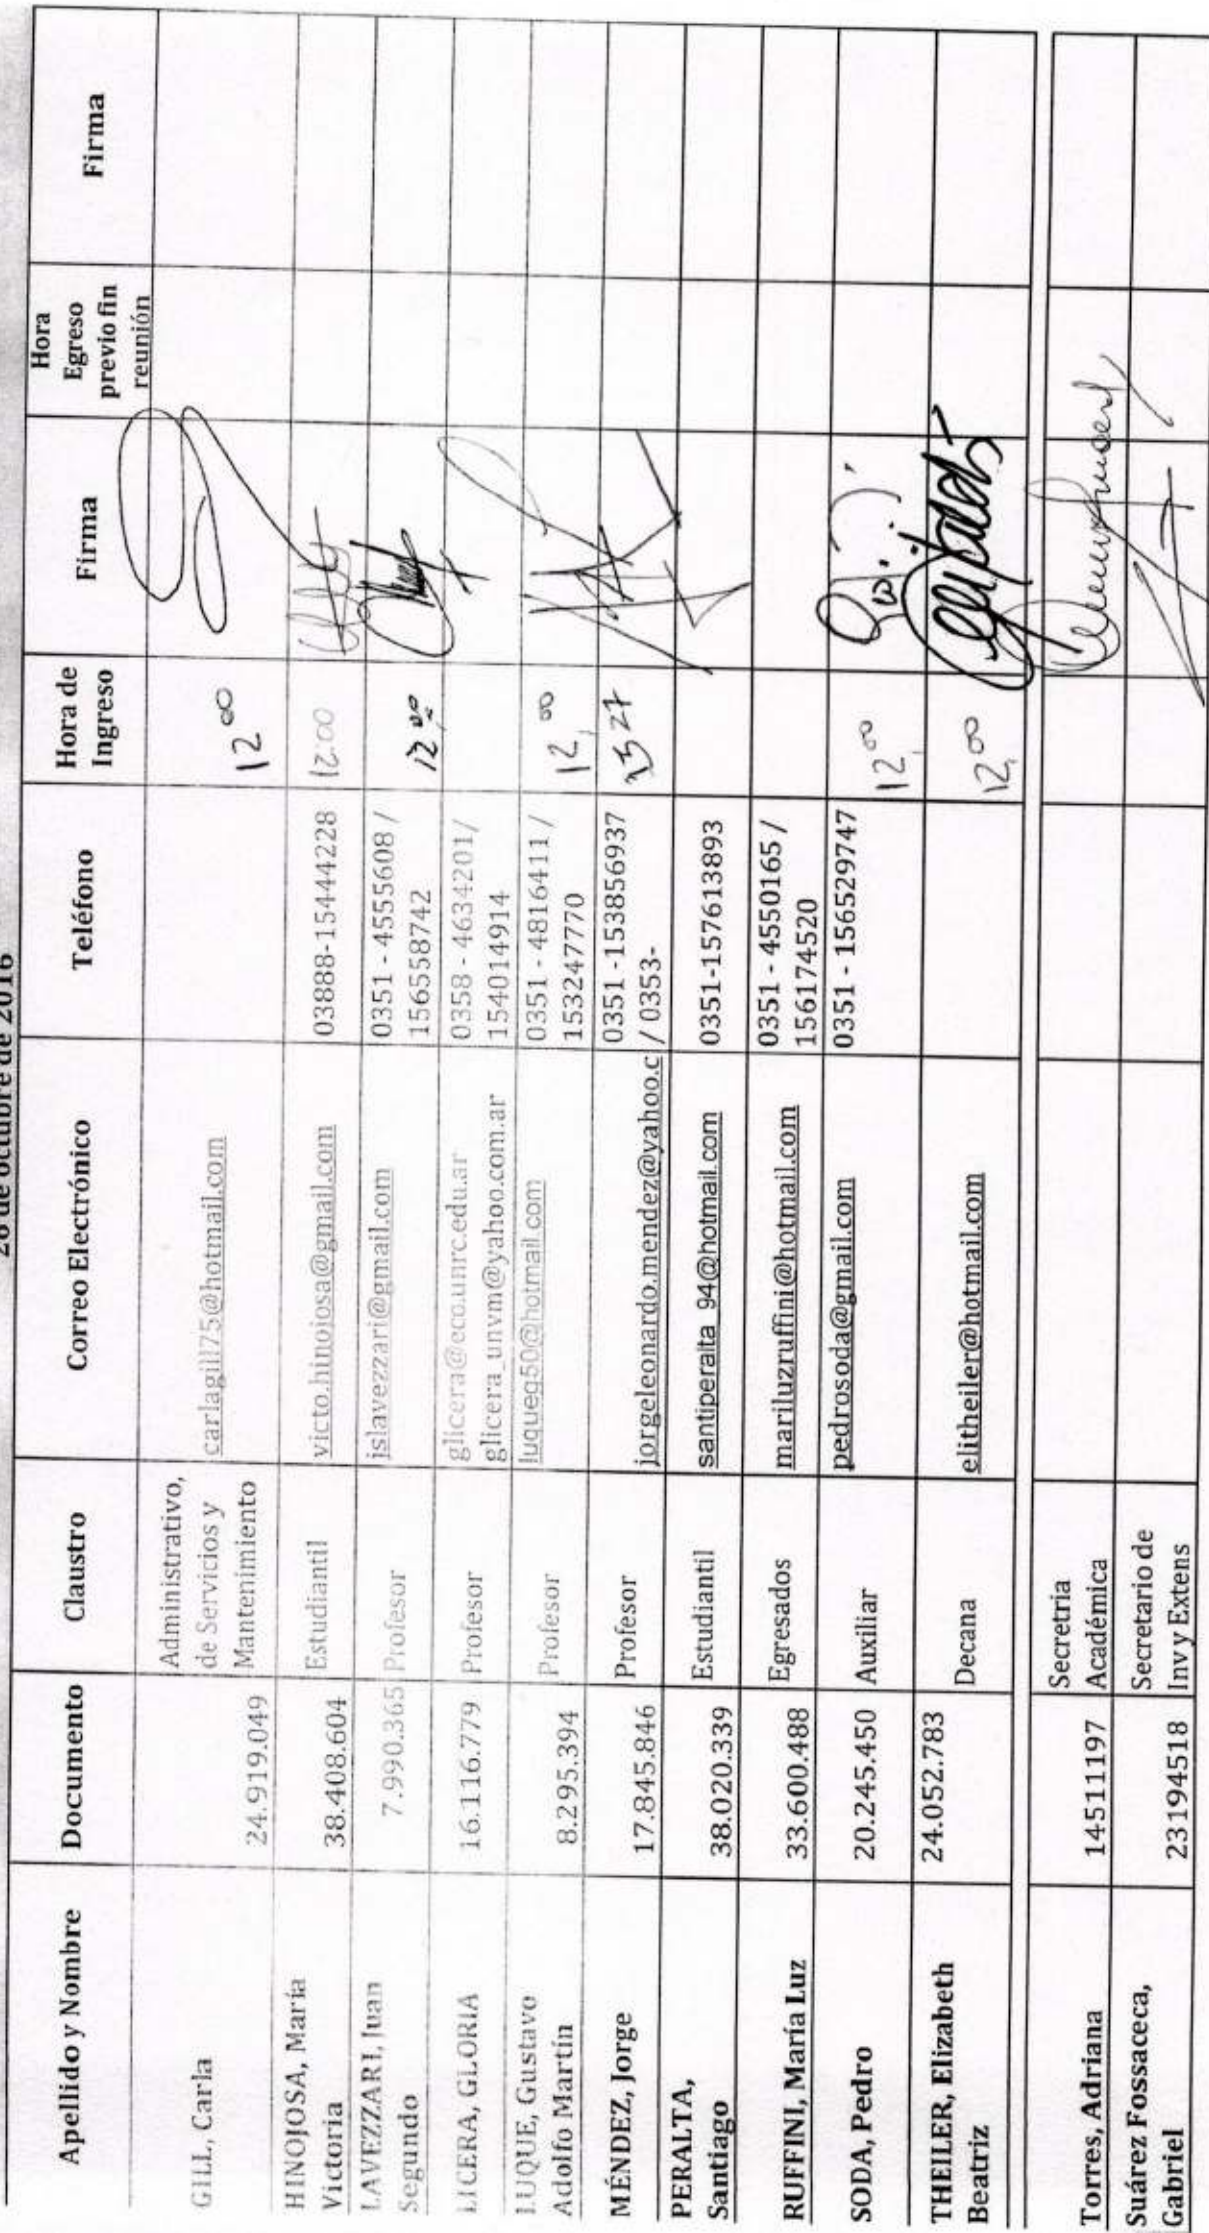 26 de octubre de 2016
Apellido y Nombre Documento Claustro Correo Electrónico Teléfono Hora de Ingreso Firma Hora Egreso previo fin reunión Firma
GILL, Carla 24.919.049 Administrativo, de Servicios y Mantenimiento carlagill75@hotmail.com 12 00
HINOJOSA, María Victoria 38.408.604 Estudiantil victo.hinojosa@gmail.com 03888-15444228 12:00
LAVEZZARI, Juan Segundo 7.990.365 Profesor jslavezzari@gmail.com 0351 - 4555608 / 156558742 12.00
LICERA, GLORIA 16.116.779 Profesor glicera@eco.unrc.edu.ar glicera_unvm@yahoo.com.ar 0358 - 4634201/ 154014914
LUQUE, Gustavo Adolfo Martín 8.295.394 Profesor luqueg50@hotmail.com 0351 - 4816411 / 153247770 12,00
MÉNDEZ, Jorge 17.845.846 Profesor jorgeleonardo.mendez@yahoo.c 0351 -153856937 / 0353-
PERALTA, Santiago 38.020.339 Estudiantil santiperalta_94@hotmail.com 0351-157613893
RUFFINI, María Luz 33.600.488 Egresados mariluzruffini@hotmail.com 0351 - 4550165 / 156174520
SODA, Pedro 20.245.450 Auxiliar pedrosoda@gmail.com 0351 - 156529747 12,00
THEILER, Elizabeth Beatriz 24.052.783 Decana elitheiler@hotmail.com 12,00
Torres, Adriana 14511197 Secretria Académica
Suárez Fossaceca, Gabriel 23194518 Secretario de Inv y Extens